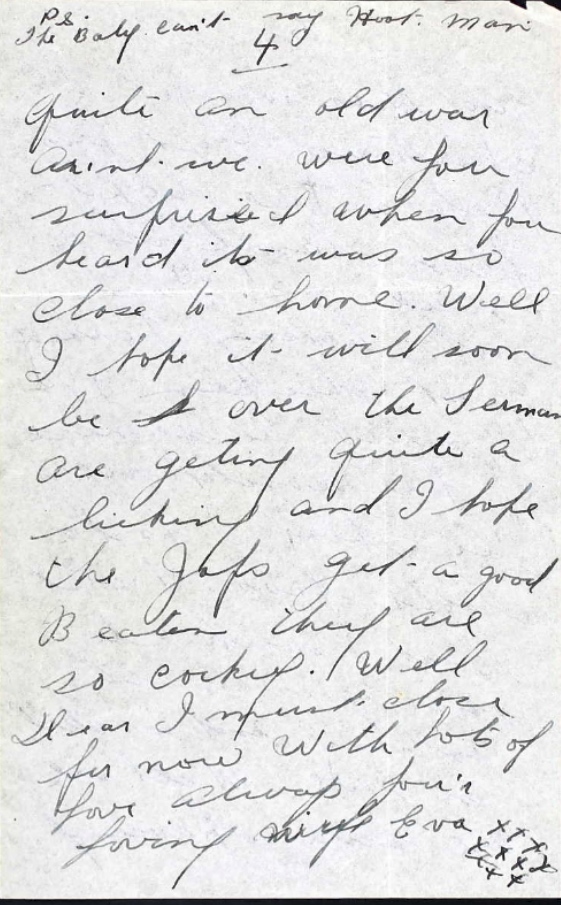 P.S.
The Baby can't say Hoot. Man
4
quite an old war
aint we. were you
surprised when you
heard it was so
close to home. Well
I hope it will soon
be over the German
are geting quite a
licking and I hope
the Japs get a good
Beaten they are
so cockey. Well
Dear I must close
for now With lots of
love always your's
loving wife Eva xxxx
xxxx
xxxx